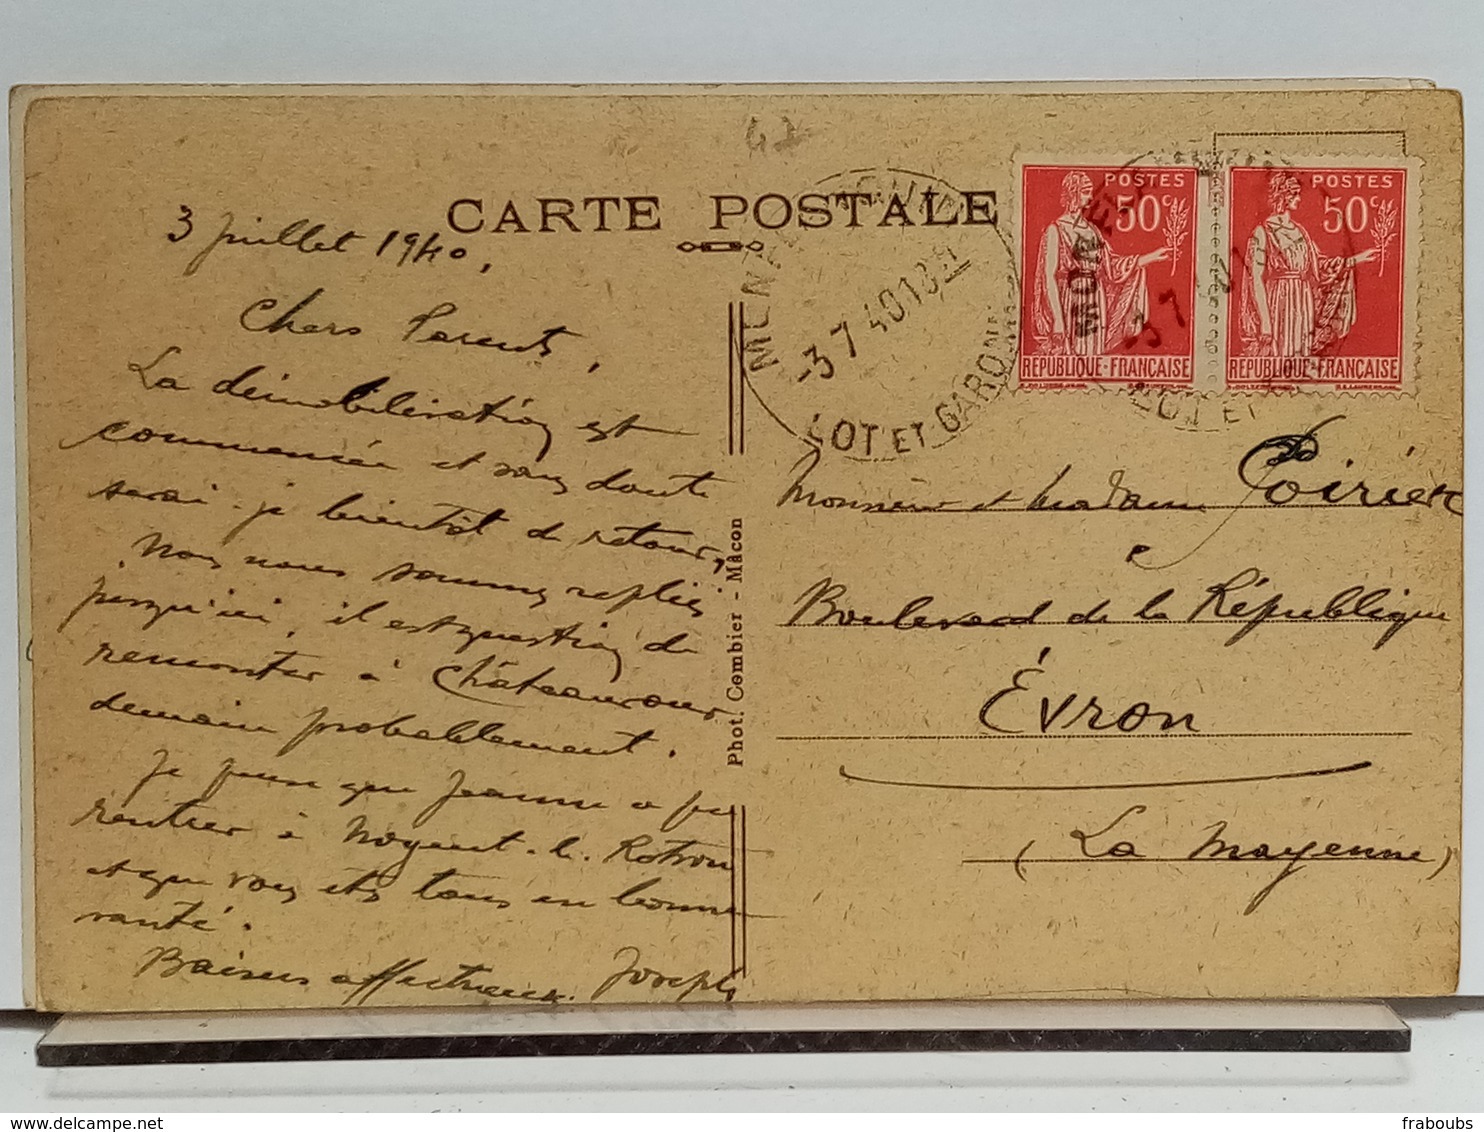 47
CARTE POSTALE
3 juillet 1940.
Chers Parents,
La démobilisation est
commencée et sans doute
serai-je bientôt de retour,
Nous nous sommes repliés
jusqu'ici, il est question de
remonter à Châteauroux
demain probablement.
Je pense que Jeanne a pu
rentrer à Nogent-le-Rotrou
et que vous êtes tous en bonne
santé.
Baisers affectueux. Joseph
Phot. Combier - Mâcon
-3 7 40
LOT ET GARONNE
POSTES
50c
RÉPUBLIQUE-FRANÇAISE
POSTES
50c
RÉPUBLIQUE-FRANÇAISE
-3 7
LOT ET GARONNE
Monsieur et Madame Poirier
Boulevard de la République
Évron
(La Mayenne)
fraboubs